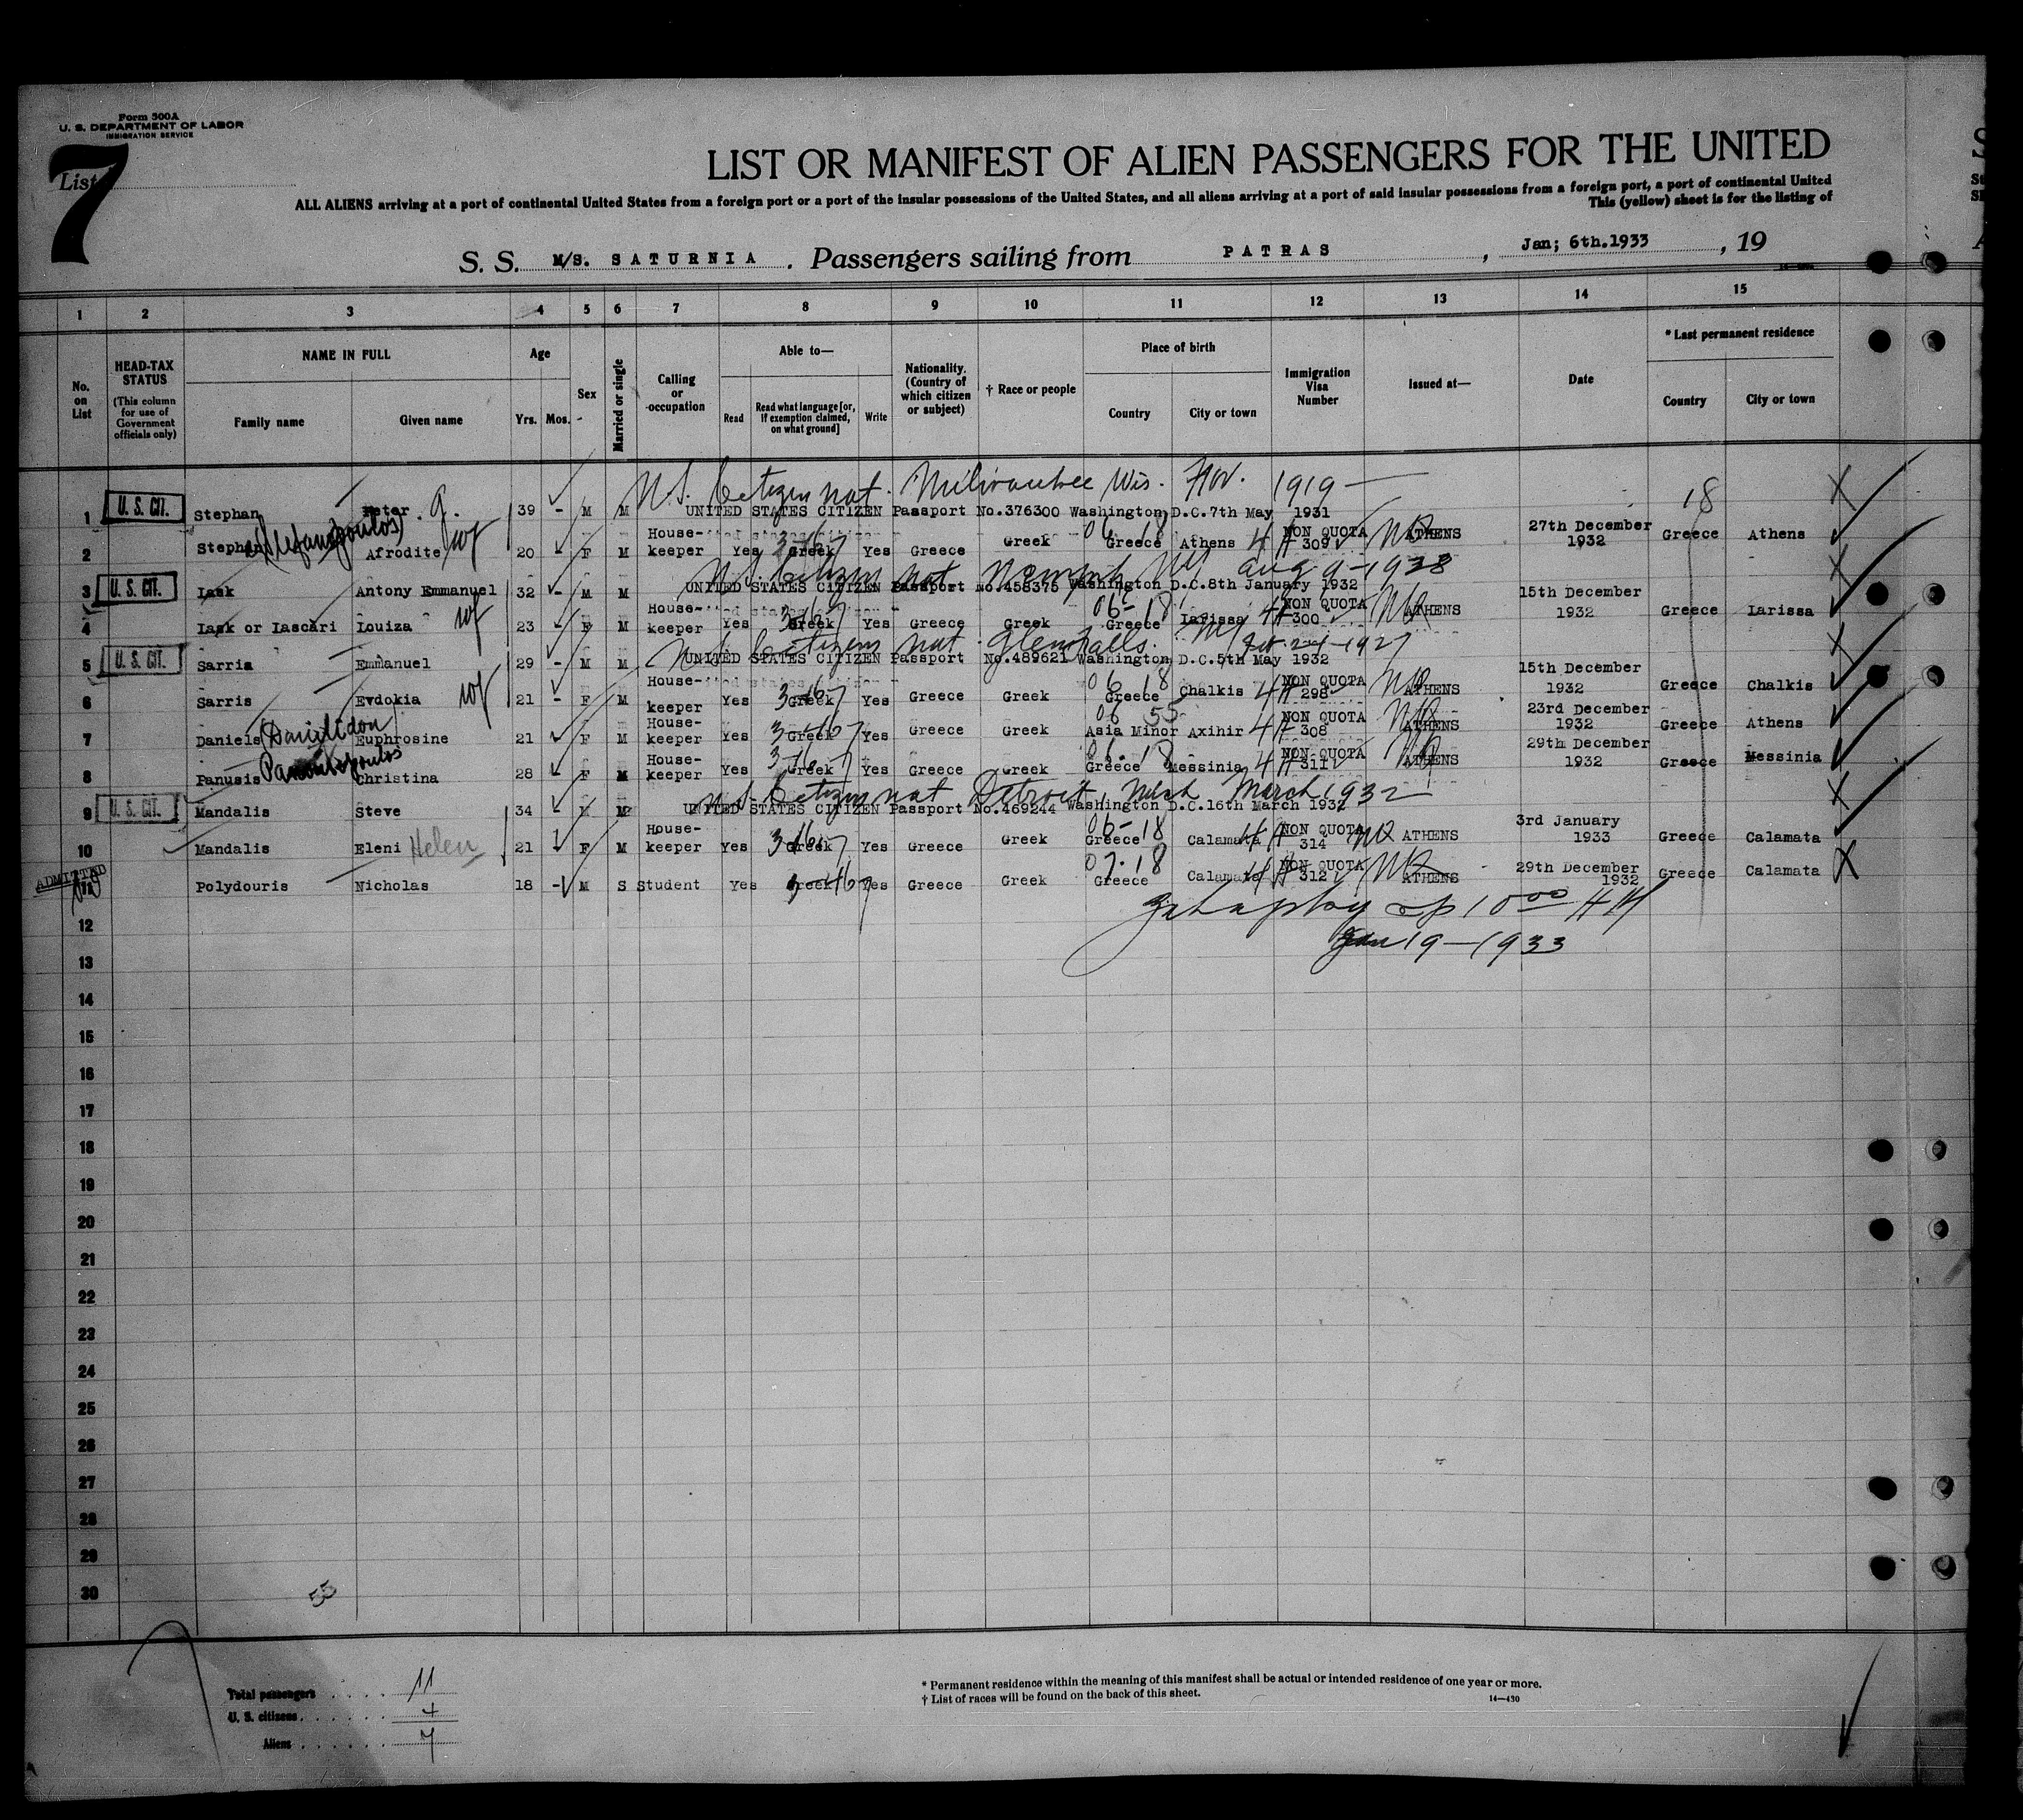 Form 500A
U. S. DEPARTMENT OF LABOR
IMMIGRATION SERVICE
List 7
LIST OR MANIFEST OF ALIEN PASSENGERS FOR THE UNITED
ALL ALIENS arriving at a port of continental United States from a foreign port or a port of the insular possessions of the United States, and all aliens arriving at a port of said insular possessions from a foreign port, a port of continental United
This (yellow) sheet is for the listing of
S. S. M/S. SATURNIA . Passengers sailing from PATRAS , Jan; 6th.1933 , 19
1 2 3 4 5 6 7 8 9 10 11 12 13 14 15
No. on List
HEAD-TAX STATUS (This column for use of Government officials only)
NAME IN FULL
Family name Given name
Age
Yrs. Mos.
Sex
Married or single
Calling or occupation
Able to—
Read Read what language [or, if exemption claimed, on what ground] Write
Nationality. (Country of which citizen or subject)
† Race or people
Place of birth
Country City or town
Immigration Visa Number
Issued at—
Date
* Last permanent residence
Country City or town
U.S. Citizen nat. Milwaukee Wis. Nov. 1919 —
1 U. S. CIT. Stephan Peter G. 39 - M M UNITED STATES CITIZEN Passport No.376300 Washington D.C.7th May 1931 18
2 Stephan (Stefanopoulos) Afrodite wf 20 - F M House-keeper Yes Greek Yes Greece Greek 06 18 Greece Athens NON QUOTA 309 ATHENS 27th December 1932 Greece Athens
U.S. Citizen nat Newark NJ Aug 9-1928
3 U. S. CIT. Lask Antony Emmanuel 32 - M M UNITED STATES CITIZEN Passport No.458375 Washington D.C.8th January 1932
4 Lask or Lascari Louiza wf 23 - F M House-keeper Yes Greek Yes Greece Greek 06-18 Greece Larissa NON QUOTA 300 ATHENS 15th December 1932 Greece Larissa
U.S. Citizen nat. Glens Falls. NY 1927
5 U. S. CIT. Sarria Emmanuel 29 - M M UNITED STATES CITIZEN Passport No.489621 Washington D.C.5th May 1932
6 Sarris Evdokia wf 21 - F M House-keeper Yes Greek Yes Greece Greek 06 18 Greece Chalkis NON QUOTA 298 ATHENS 15th December 1932 Greece Chalkis
7 Daniels (Daniilidou) Euphrosine 21 - F M House-keeper Yes Greek Yes Greece Greek 06 55 Asia Minor Axihir NON QUOTA 308 ATHENS 23rd December 1932 Greece Athens
8 Panusis Christina 28 - F M House-keeper Yes Greek Yes Greece Greek 06-18 Greece Messinia NON QUOTA 311 ATHENS 29th December 1932 Greece Messinia
U.S. Citizen nat Detroit, Mich March 1932
9 U. S. CIT. Mandalis Steve 34 - M M UNITED STATES CITIZEN Passport No.469244 Washington D.C.16th March 1932
10 Mandalis Eleni Helen 21 - F M House-keeper Yes Greek Yes Greece Greek 06-18 Greece Calamata NON QUOTA 314 ATHENS 3rd January 1933 Greece Calamata
ADMITTED
11 Polydouris Nicholas 18 - M S Student Yes Greek Yes Greece Greek 07-18 Greece Calamata NON QUOTA 312 ATHENS 29th December 1932 Greece Calamata
12
Jan 19-1933
13
14
15
16
17
18
19
20
21
22
23
24
25
26
27
28
29
30
Total passengers 11
U. S. citizens 4
Aliens 7
* Permanent residence within the meaning of this manifest shall be actual or intended residence of one year or more.
† List of races will be found on the back of this sheet.
14—430